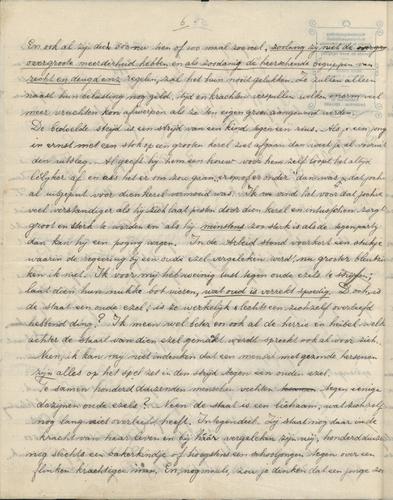 6
En ook al zijn deze 200 nu tien of 100 maal zooveel, zoolang zij niet de
overgroote meerderheid hebben en als zoodanig de heerschende begrippen van
recht en deugd enz regelen, zal het hun nooit gelukken. Ze zullen alleen
naast hun belasting nog geld, tijd en krachten verspillen welke enorm veel
meer vruchten kon afwerpen als ze ten eigen groei aangewend werden.
De bedoelde strijd is een strijd van een kind tegen een reus. Als je een jong
in ernst met een stok op een grooten kerel ziet afgaan dan weet je al vooruit
den uitslag. Al geeft hij hem een houw voor hem zelf loopt het altijd
leelijker af en als het er om zou gaan,
al uitgeput voor dien kerel vermoeid was. Ik vind het voor dat jochie
veel verstandiger als hij zich laat pesten door dien kerel en intusschen zorgt
groot en sterk te worden en als hij minstens zoo sterk is als de tegenpartij
dan kan hij een poging wagen. In de Arbeid stond voorkort een stukje
waarin de regeering bij een oude ezel vergeleken werd; nu grooter
ken ik niet. Ik voor mij heb weinig lust tegen oude ezels te
laat dien hun makke bot vieren, wat oud is verrekt spoedig. D.ooh, is
de staat een oude ezel; is ze werkelijk slechts een zichzelf overleefd
hebbend ding? Ik meen wel beter en ook al de herrie en heibel welke
achter de staat van dien ezel gemaakt wordt spreekt ook al voor zich.
Neen, ik kan mij niet indenken dat een mensch met gezonde hersenen
zijn alles op het spel zet in den strijd tegen een ouden ezel.
Te samen honderdduizenden menschen vechten tegen eenige
dozijnen oude ezels? Neen de staat is een lichaam, wat zichzelf
nog lang niet overleefd heeft. Integendeel. Zij staat nog daar in de
kracht van haar leven en bij haar vergeleken zijn wij, honderdduizend
nog slechts een bakerkindje of hoogstens een schooljongen tegen over een
flinken krachtigen man. En, nogmaals, zou je denken dat een jonge